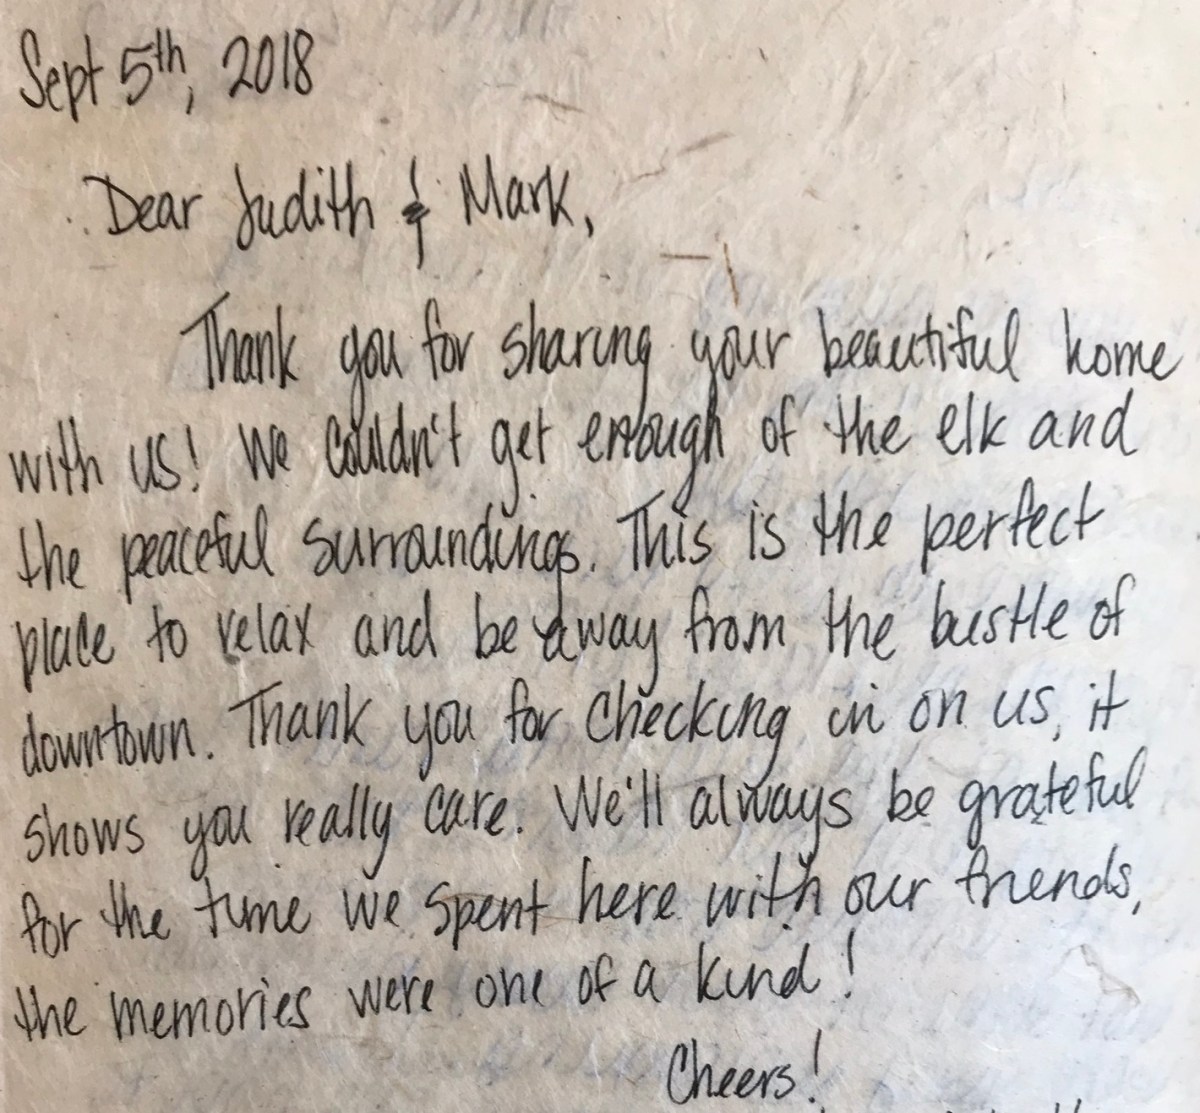 Sept 5th, 2018
Dear Judith & Mark,
Thank you for sharing your beautiful home
with us! We couldn't get enough of the elk and
the peaceful surroundings. This is the perfect
place to relax and be away from the bustle of
downtown. Thank you for checking in on us, it
shows you really care. We'll always be grateful
for the time we spent here with our friends,
the memories were one of a kind!
Cheers!